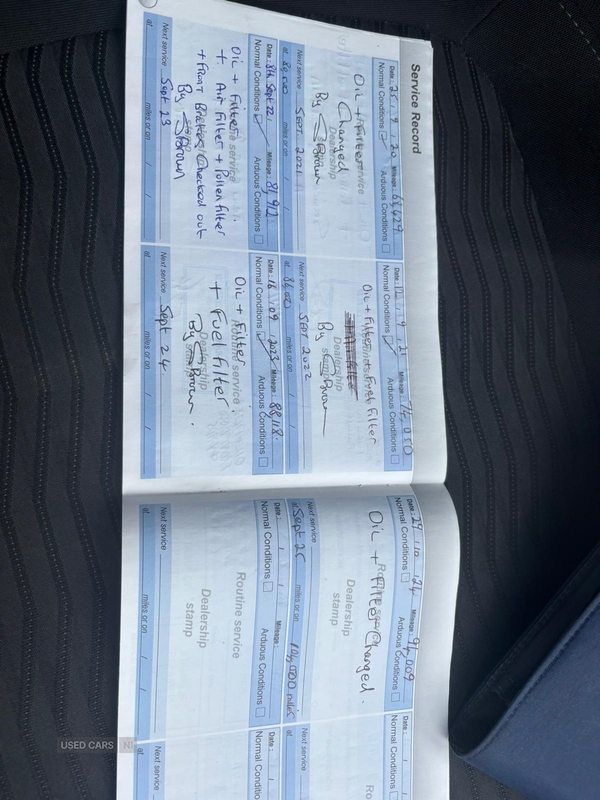 Service Record
Date: 25 / 9 / 20 Mileage: 68,629
Normal Conditions ✓ Arduous Conditions
Routine service
Oil + Filter
Changed
Dealership
By S Brown
Next service Sept 2021
at 80,000 miles or on / /
Date: 12 / 9 / 21 Mileage:
Normal Conditions ✓ Arduous Conditions
Routine service
Oil + Filter + Fuel Filter
Dealership
stamp
By S Brown
Next service Sept 2022
at 86,000 miles or on / /
Date: 8th Sept 22 Mileage: 81,912
Normal Conditions ✓ Arduous Conditions
Routine service
Oil + Filter
+ Air Filter + Pollen filter
+ Front Brakes Checked out
By S Brown
Next service Sept 23
at miles or on / /
Date: 16 / 09 / 2023 Mileage: 88,118
Normal Conditions ✓ Arduous Conditions
Routine service
Oil + Filter
+ Fuel Filter
Dealership
stamp
By S Brown.
Next service Sept 24
at miles or on / /
Date: 29 / 10 / 24 Mileage: 94,009
Normal Conditions Arduous Conditions
Routine service
Oil + Filter Changed.
Dealership
stamp
Next service
at Sept 25 miles or on 104,000 miles
Date: / / Mileage:
Normal Conditions Arduous Conditions
Routine service
Dealership
stamp
Next service
at miles or on / /
Date: / /
Normal Conditions
Ro
Next service
at
Date: /
Normal Conditio
Next service
at
USED CARS NI